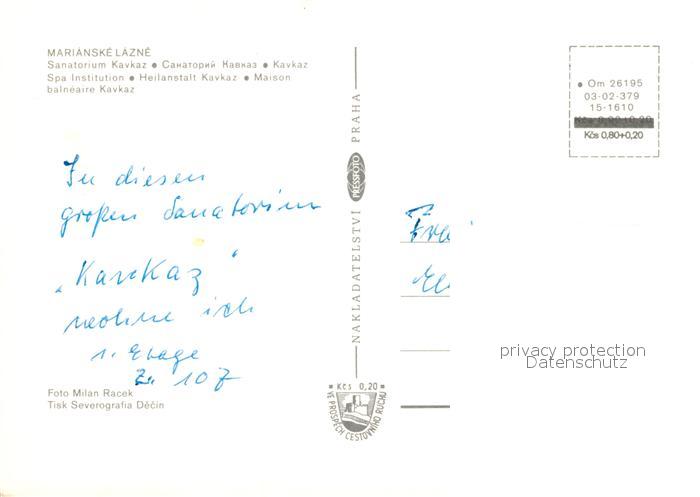 MARIÁNSKÉ LÁZNĚ
Sanatorium Kavkaz ● Санаторий Кавказ ● Kavkaz
Spa Institution ● Heilanstalt Kavkaz ● Maison
balnéaire Kavkaz
In diesen
großen Sanatorium
„Kavkaz"
wohne ich
1. Etage
Z. 107
Foto Milan Racek
Tisk Severografia Děčín
NAKLADATELSTVÍ PRESSFOTO PRAHA
* Kčs 0,20 *
VE PROSPĚCH CESTOVNÍHO RUCHU
● Om 26195
03-02-379
15-1610
Kčs 0,80+0,20
Fra
El
privacy protection
Datenschutz